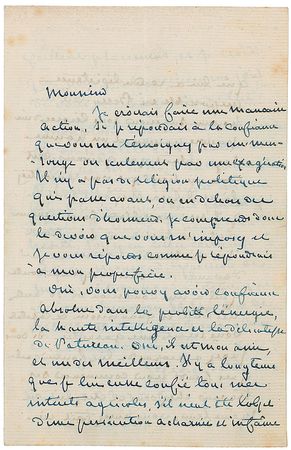 Monsieur
Je croirais faire une mauvaise
action, si je répondais à la confiance
que vous me témoignez par un men-
songe ou seulement par une exagération.
Il n'y a pas de religion politique
qui passe avant, ou en dehors de
questions d'honneur. Je comprends donc
le devoir que vous m'imposez et
je vous réponds comme je répondrais
à mon propre frère.
Oui, vous pouvez avoir confiance
absolue dans la probité, l'énergie,
la haute intelligence et la délicatesse
de Patureau. Oui, il est mon ami,
et un des meilleurs. Il y a longtems
que je lui eusse confié tous mes
intérêts agricoles, s'il n'eut été l'objet
d'une persécution acharnée et infâme